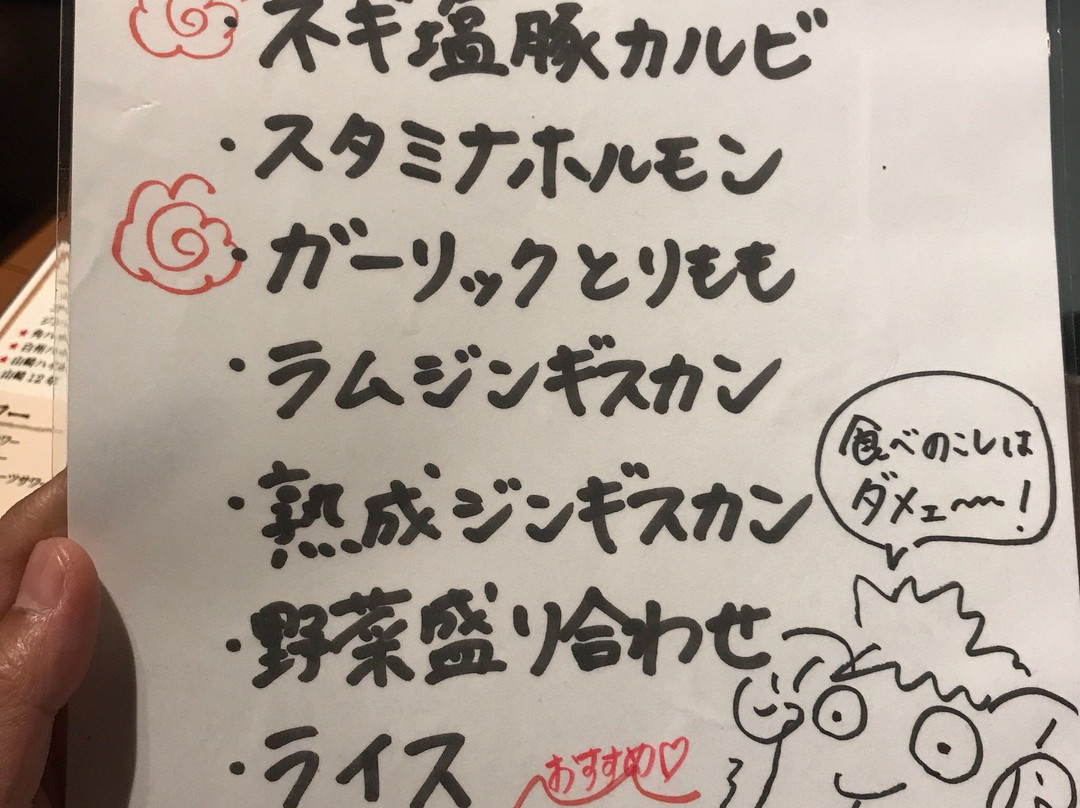 ・ネギ塩豚カルビ
・スタミナホルモン
・ガーリックとりもも
・ラムジンギスカン
・熟成ジンギスカン
・野菜盛り合わせ
・ライス
おすすめ♡
食べのこしは
ダメェ〜!
山崎12年